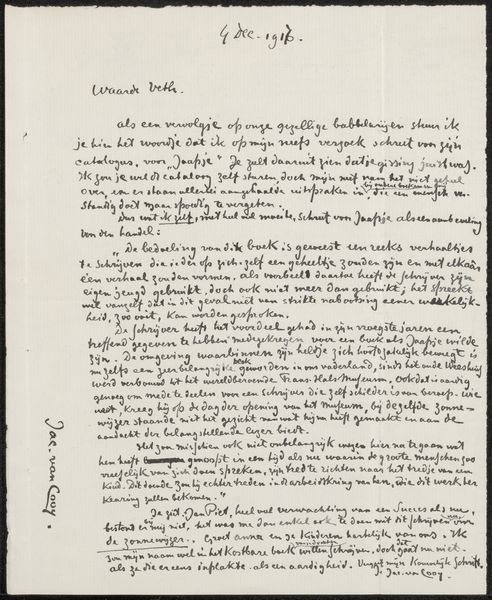 4 Dec. 1917.
Waarde Veth.
als een vervolgje op onze gezellige babbelarijen stuur ik
je hier het woordje dat ik op mijn neefs verzoek schreef voor zijn
catalogus, voor "Jaapje". Je zult daaruit zien dat je gissing juist was.
Ik zou je wel de cataloog zelf sturen, doch mijn
over, en er staan allerlei aangehaalde uitspraken in, die een mensch ver-
standig doet maar spoedig te vergeten.
Dus wat ik zelf, met heel veel moeite, schreef van Jaapje als een aanbeveling
van den handel:
"De bedoeling van dit boek is geweest een reeks verhaaltjes
te schrijven die ieder op zich-zelf een geheeltje zouden zijn en met elkaâr
één verhaal zouden vormen. Als voorbeeld daartoe heeft de schrijver zijn
eigen jeugd gebruikt, doch ook niet meer dan gebruikt; het spreekt
wel vanzelf dat in dit geval niet van strikte nabootsing eener werkelijk-
heid, zoo ooit, kan worden gesproken.
De schrijver heeft het voordeel gehad in zijn vroegste jaren een
treffend gegeven te hebben medegekregen voor een boek als Jaapje wilde
zijn. De omgeving waarbinnen zijn heldje zich hoofdzakelijk beweegt is
nu zelfs een zeer belangrijke plek geworden in ons vaderland, sinds het oude weeshuis
werd verbouwd tot het wereldberoemde Frans Hals Museum. Ook dat is aardig
genoeg om mede te deelen van een schrijver die zelf schilder is van beroep. Wie
weet, kreeg hij op de dag der opening van het Museum, bij dezelfde zonne-
wijzer staande niet het gezicht van wat hij nu heeft gemaakt en aan de
aandacht der belangstellende lezer biedt.
Het zou misschien ook niet onbelangrijk wezen hier na te gaan wat
hen heeft genoopt in een tijd als nu waarin de groote menschen zoo
vreeselijk van zich doen spreken, zijn tred te richten naar het tredje van een
kind. Dit doende zou hij echter treden in
Kearing zullen bekomen."
Je ziet, Jan Piet, heel veel verwachting van een succes als nu,
bestond er bij mij niet, het was me dan enkel ook te doen met dit schrijven over
de zonnewijzer. Groet Anna en je Kinderen hartelijk van ons. Ik
zou mijn naam wel in het Kostbare boek willen schrijven, doch dat gaat nu niet
als ze die er eens inplakte als een aardigheid.
Jac. van Looy.
Jac. van Looy.